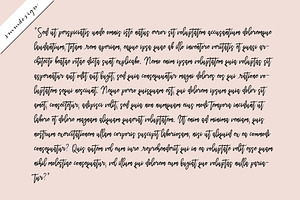 "Sed ut perspiciatis unde omnis iste natus error sit voluptatem accusantium doloremque
laudantium, totam rem aperiam, eaque ipsa quae ab illo inventore veritatis et quasi ar-
chitecto beatae vitae dicta sunt explicabo. Nemo enim ipsam voluptatem quia voluptas sit
aspernatur aut odit aut fugit, sed quia consequuntur magni dolores eos qui ratione vo-
luptatem sequi nesciunt. Neque porro quisquam est, qui dolorem ipsum quia dolor sit
amet, consectetur, adipisci velit, sed quia non numquam eius modi tempora incidunt ut
labore et dolore magnam aliquam quaerat voluptatem. Ut enim ad minima veniam, quis
nostrum exercitationem ullam corporis suscipit laboriosam, nisi ut aliquid ex ea commodi
consequatur? Quis autem vel eum iure reprehenderit qui in ea voluptate velit esse quam
nihil molestiae consequatur, vel illum qui dolorem eum fugiat quo voluptas nulla paria-
tur?"